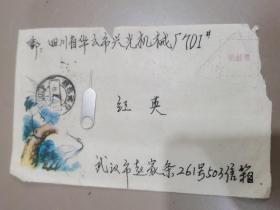 邮: 四川省华云市兴光机械厂701#
红英
武汉市赵家条261号503信箱